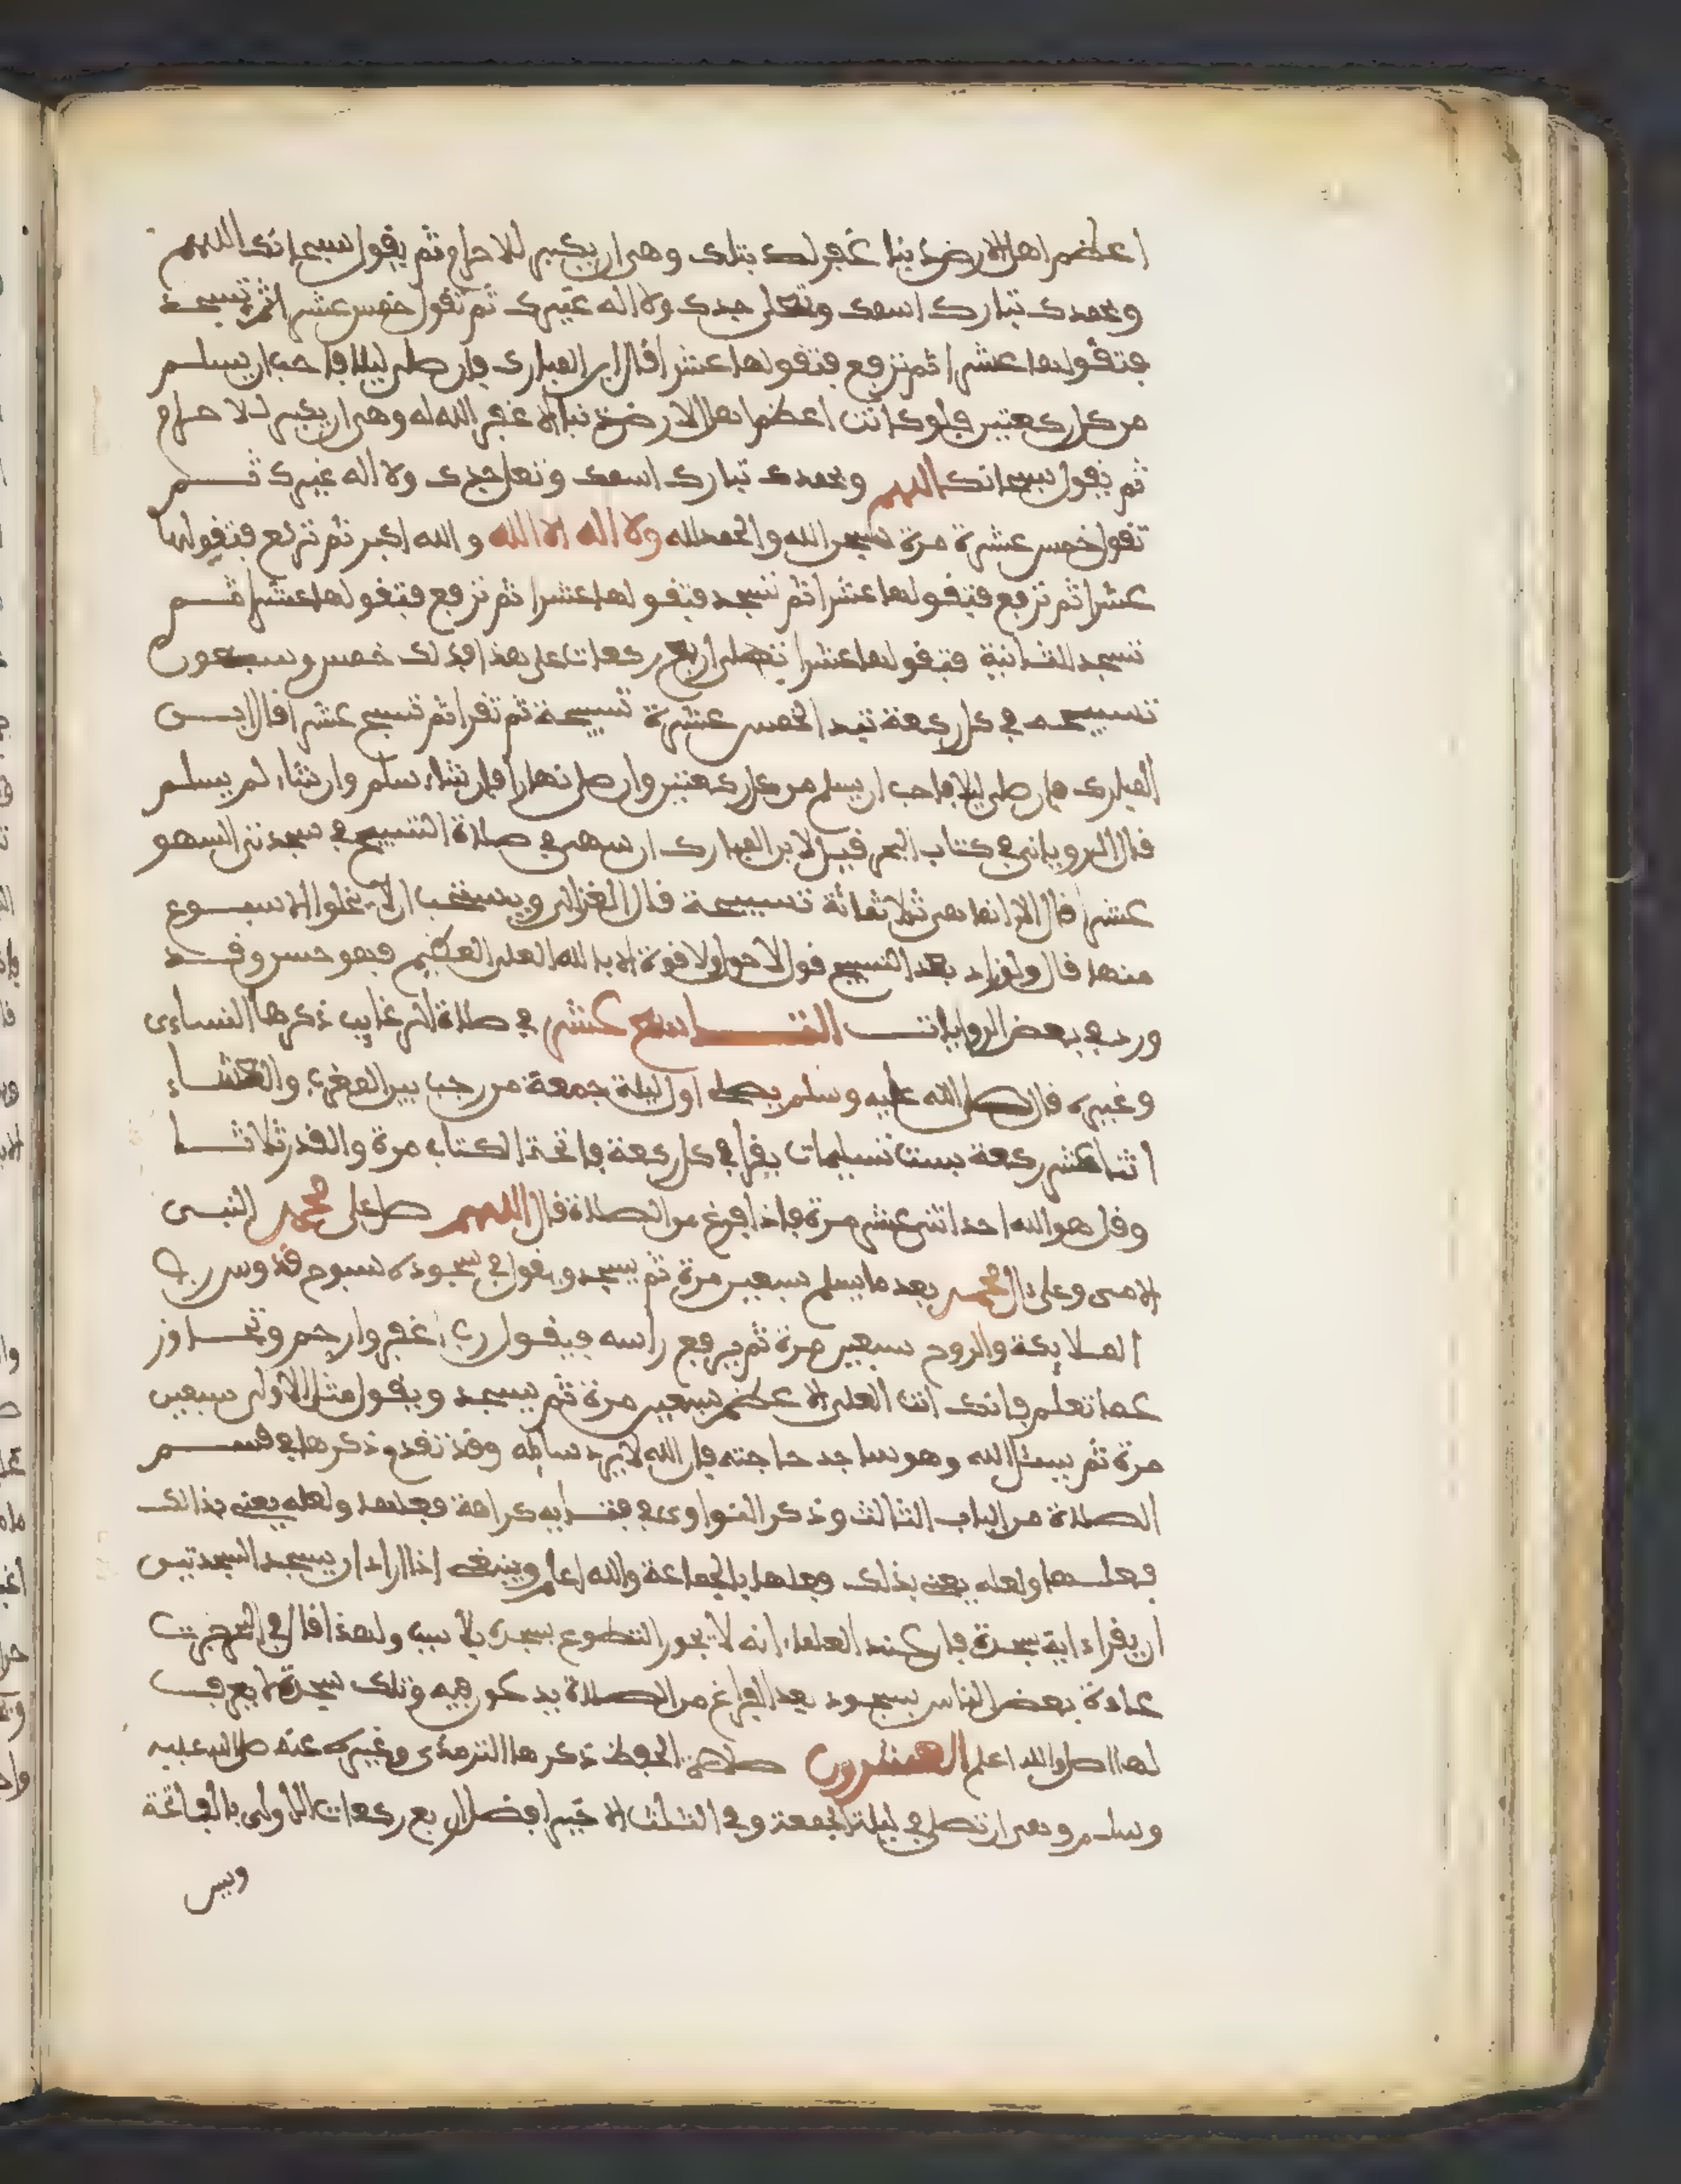 اعظم اهل الارض ذنبا غفر لك بتلك وهى ان يكبر للاحرام ثم يقول سبحانك اللهم
وبحمدك تبارك اسمك وتعلى جدك ولا اله غيرك ثم تقول خمس عشر اثم تسجد
فتقولها عشرا ثم ترفع فتقولها عشرا قال ابن المبارك فإن صلى ليلا فاحب ان يسلم
من كل ركعتين فلو كانت اعظم اهل الارض ذنبا الا غفر الله له وهى ان يكبر للاحرام
ثم يقول سبحانك اللهم وبحمدك تبارك اسمك وتعلى جدك ولا اله غيرك ثم
تقول خمس عشرة مرة سبحن الله والحمد لله ولا اله الا الله والله اكبر ثم تركع فتقولها
عشرا ثم ترفع فتقولها عشرا ثم تسجد فتقولها عشرا ثم ترفع فتقولها عشرا ثم
تسجد الثانية فتقولها عشرا تصلى اربع ركعات على هذا فذلك خمس وسبعون
تسبيحه في كل ركعة تبدا بخمس عشرة تسبيحة ثم تقرا ثم تسبح عشرا قال ابن
المبارك فان صلى ليلا فاحب ان يسلم من كل ركعتين وان صلى نهارا فإن شاء سلم وان شاء لم يسلم
قال الرويانى في كتاب البحر قيل لابن المبارك ان سهى في صلاة التسبيح في سجدتى السهو
عشرا قال لا انما هى ثلاثمائة تسبيحة قال الغزالى ويستحب ان لا يخلو الاسبوع
منها قال ولو زاد بعد التسبيح قول لا حول ولا قوة الا بالله العلى العظيم فهو حسن وقد
ورد في بعض الروايات التاسع عشر في صلاة الرغايب ذكرها النساءى
وغيره قال صلى الله عليه وسلم يصلى اول ليلة جمعة من رجب بين المغرب والعشاء
اثنا عشر ركعة بست تسليمات يقرا في كل ركعة فاتحة الكتاب مرة والقدر ثلاثا
وقل هو الله احد اثنى عشر مرة فإذا فرغ من الصلاة قال اللهم صل على محمد النبى
الامى وعلى ءال محمد بعد ما يسلم سبعين مرة ثم يسجد ويقول في سجوده سبوح قدوس رب
الملايكة والروح سبعين مرة ثم يرفع راسه ويقول رب اغفر وارحم وتجاوز
عما تعلم فإنك انت العلى الاعظم سبعين مرة ثم يسجد ويقول مثل الاولى سبعين
مرة ثم يسئل الله وهو ساجد حاجته فإن الله لا يرد سايله وقد تقدم ذكرها في قسم
الصلاة من الباب الثالث وذكر النواوى في فتاويه كراهة فعلها ولعله يعنى بذالك
فعلها ولعله يعنى بذلك فعلها بالجماعة والله اعلم وينبغى اذا اراد ان يسجد السجدتين
ان يقراء اية سجدة فإن عند العلماء انه لا يجوز التطوع بسجدة بلا سبب ولهذا قال في
عادة بعض الناس بسجود بعد الفراغ من الصلاة يدعون فيه وتلك سجدة لا يعرف
لها اصل والله اعلم العشرون صلاة الحفظ ذكرها الترمذى وغيره عنه صلى الله عليه
وسلم وهى ان تصلى في ليلة الجمعة وفي الثلث الاخير افضل اربع ركعات الاولى بالفاتحة
ويس